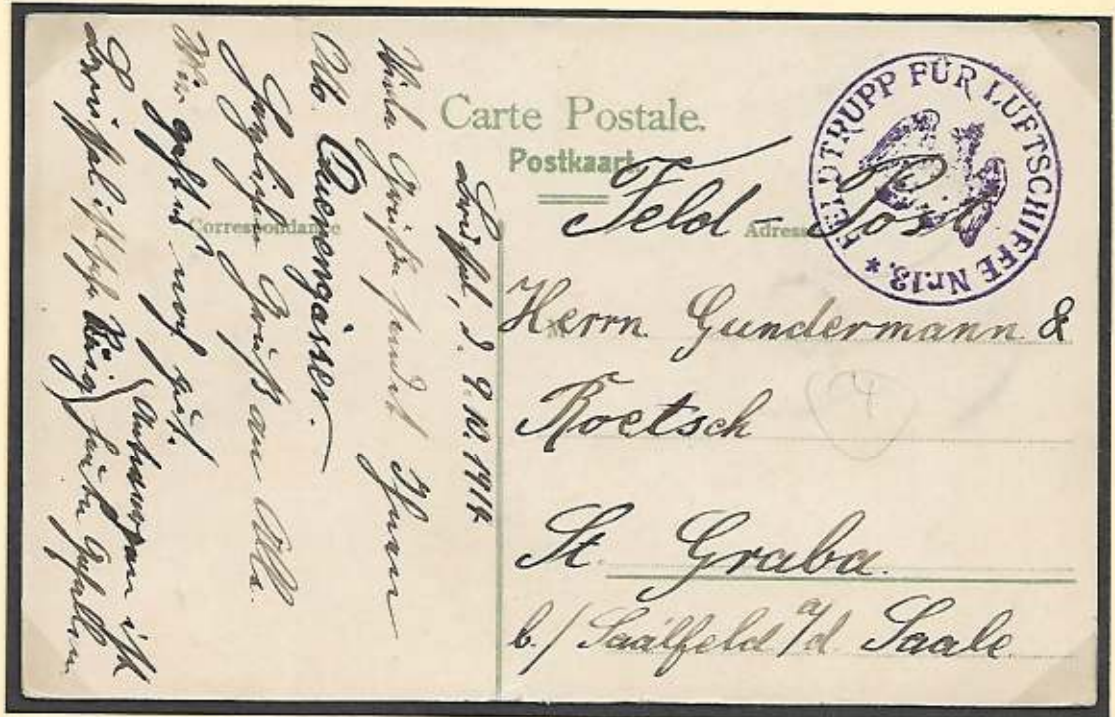 Carte Postale.
Postkaart.
Correspondance
Adresse
* FELDTRUPP FÜR LUFTSCHIFFE Nr.13.
Feld - Post
Herrn Gundermann &
Roetsch
St. Graba.
b./ Saalfeld a/d Saale
Brüssel, d. 9. 10. 1914
Viele Grüße sendet Ihnen
Alb.
Herzliche Grüße an Alle.
Mir geht es noch gut.
Antwerpen ist
Brüssel ist sehr heute gefallen